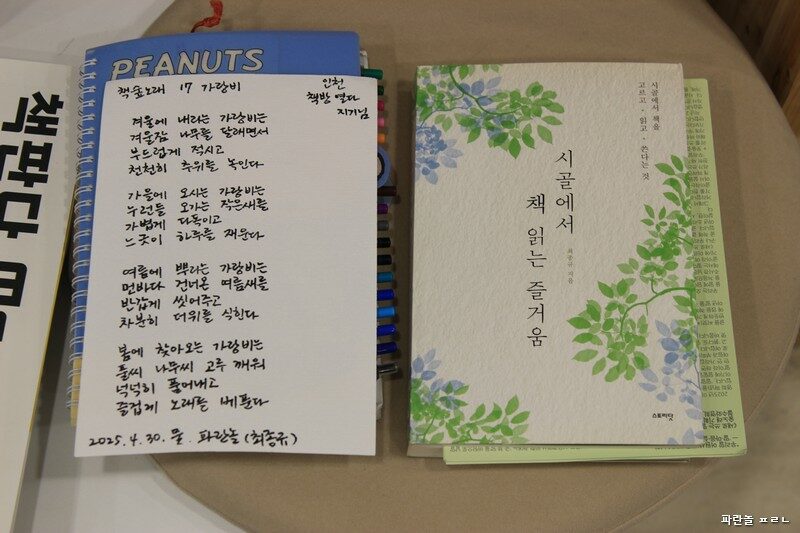 PEANUTS
책숲노래 17 가랑비
인천
책방 열다
지기님
겨울에 내리는 가랑비는
겨울잠 나무를 달래면서
부드럽게 적시고
천천히 추위를 녹인다
가을에 오시는 가랑비는
누런들 오가는 작은새를
가볍게 다독이고
느긋이 하루를 재운다
여름에 뿌리는 가랑비는
먼바다 건너온 여름새를
반갑게 씻어주고
차분히 더위를 식힌다
봄에 찾아오는 가랑비는
풀씨 나무씨 고루 깨워
넉넉히 풀어내고
즐겁게 노래를 베푼다
2025.4.30.물. 파란놀 (최종규)
시골에서 책을
고르고·읽고·쓴다는 것
시골에서
책 읽는 즐거움
최종규 지음
스토리닷
책판다
파란놀 ㅍㄹㄴ